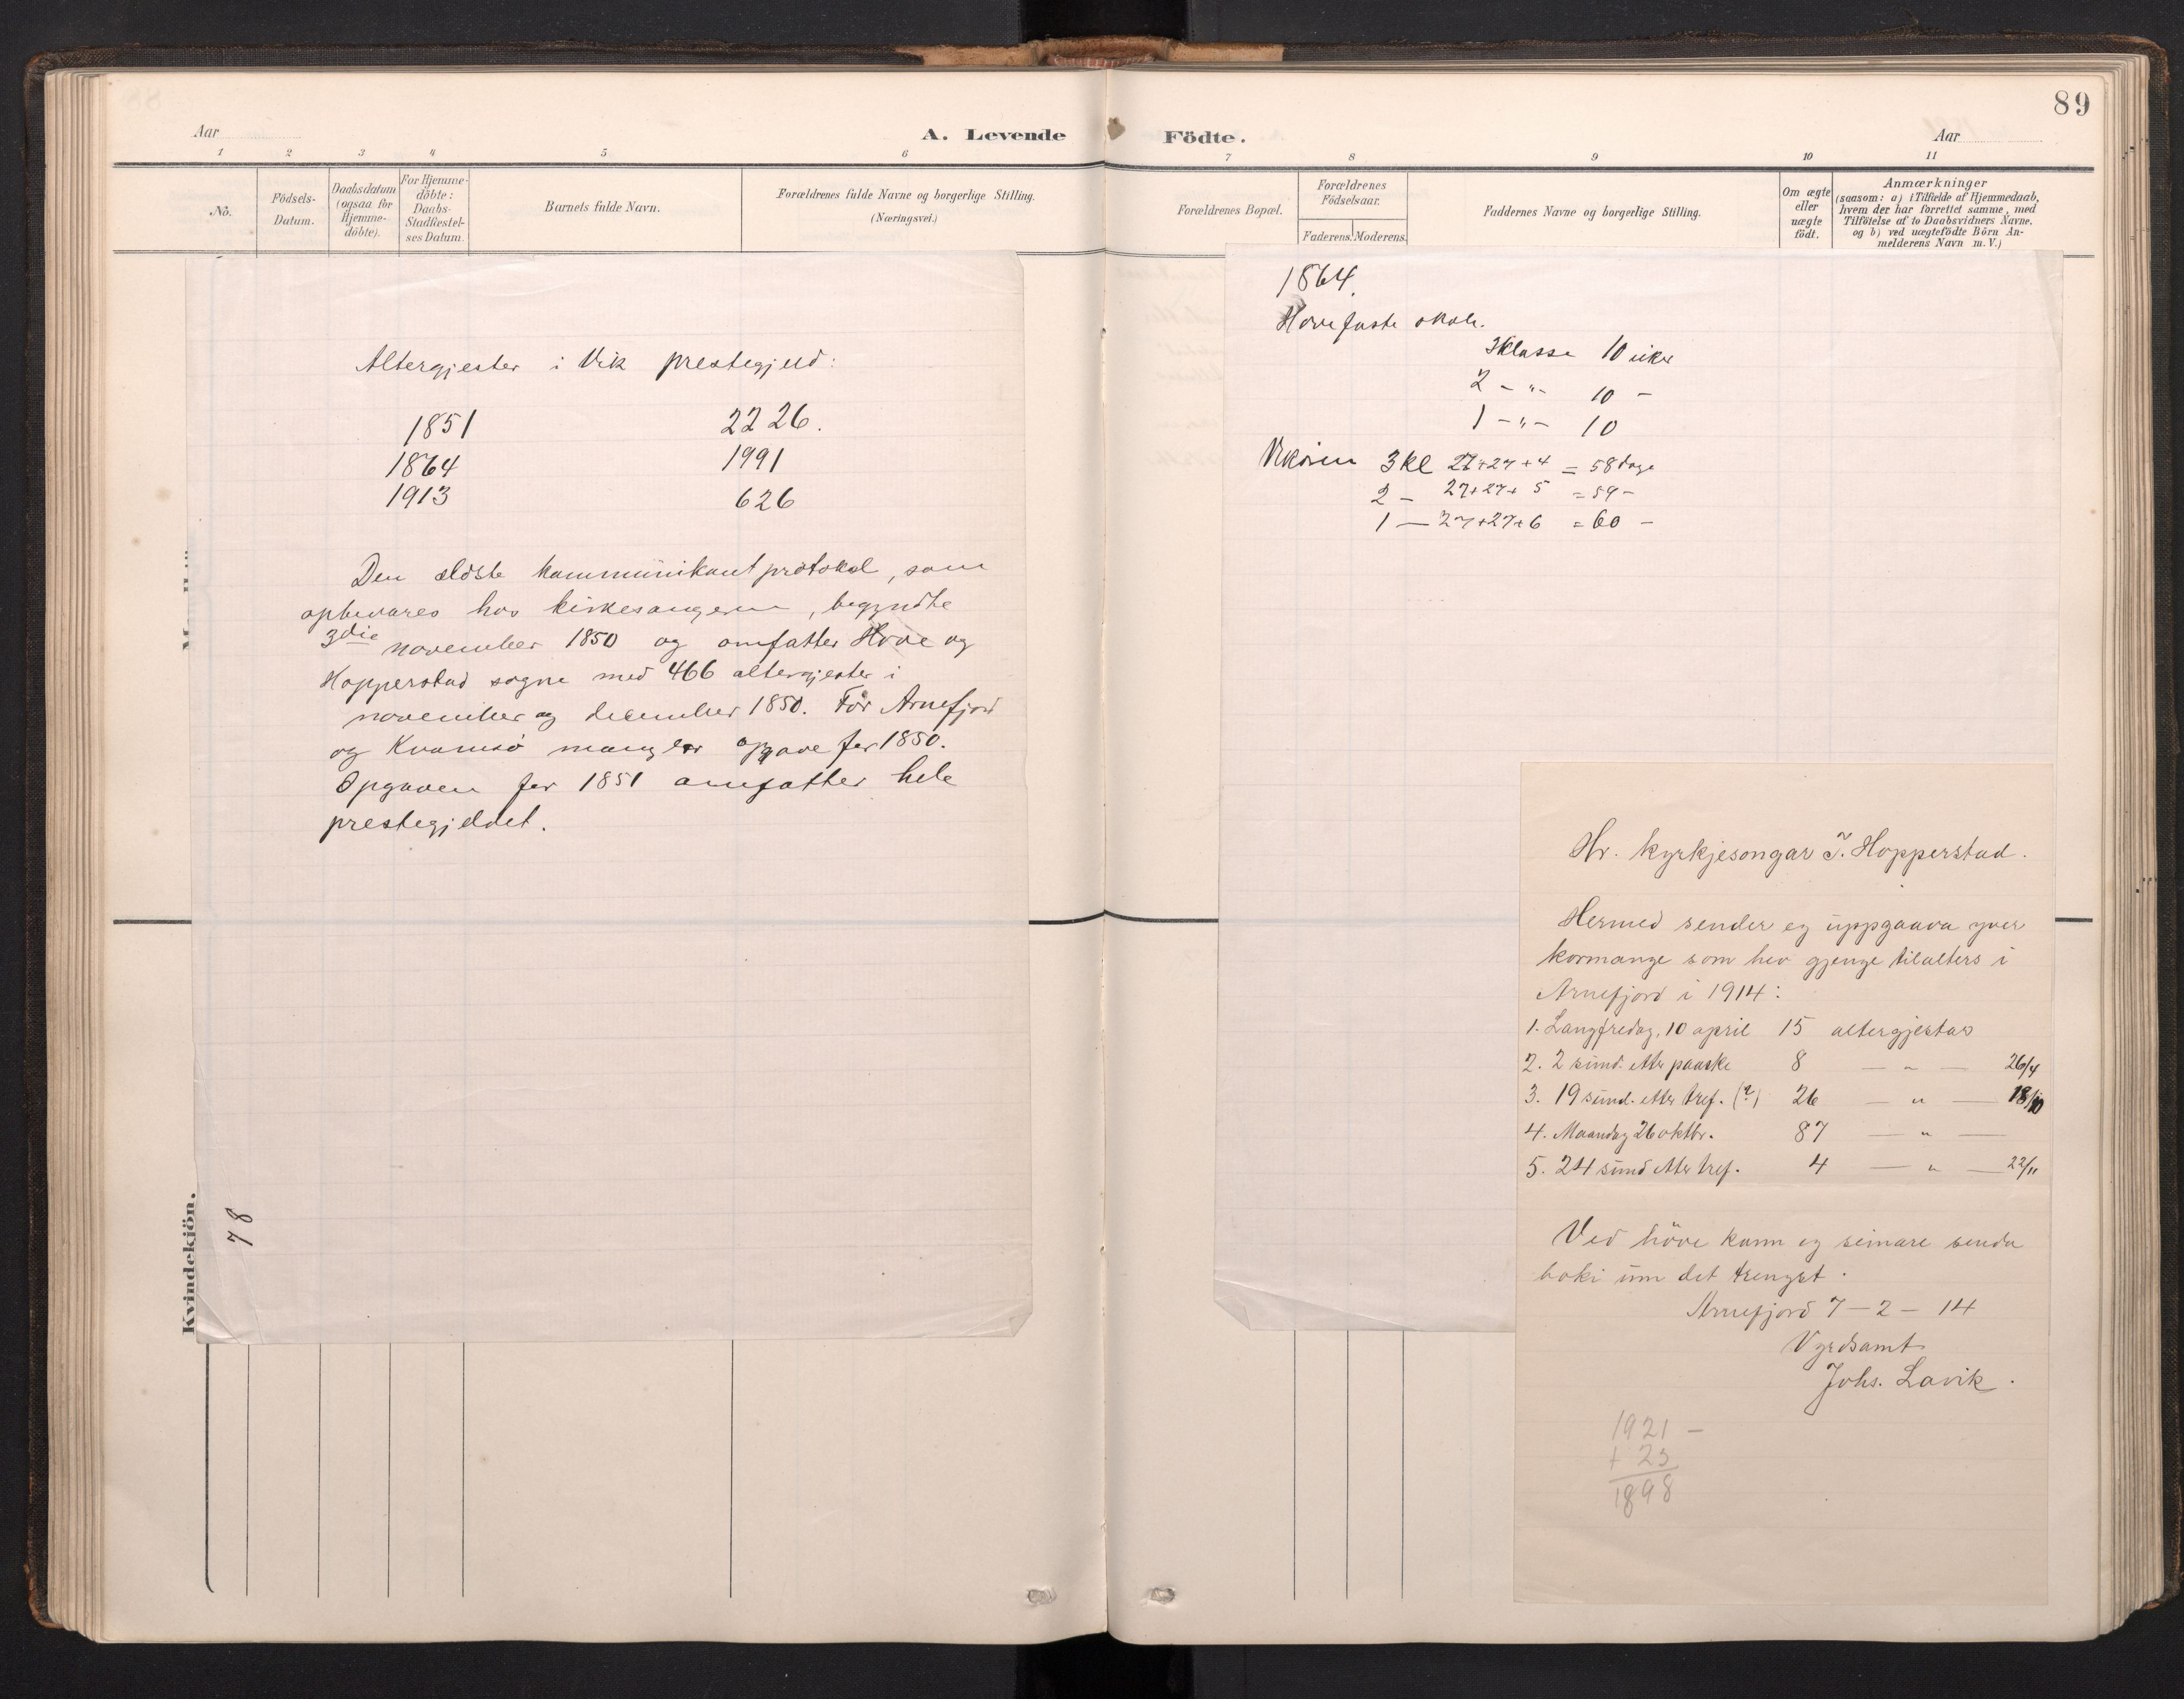 89
Aar
A. Levende
Födte.
Aar
1 2 3 4 5 6
7 8 9 10 11
No.
Födsels-
Datum.
Daabsdatum
(ogsaa for
Hjemme-
döbte).
For Hjemme-
döbte:
Daabs-
Stadfæstel-
ses Datum.
Barnets fulde Navn.
Forældrenes fulde Navne og borgerlige Stilling.
(Næringsvei.)
Forældrenes Bopæl.
Forældrenes
Födselsaar.
Faderens. Moderens.
Faddernes Navne og borgerlige Stilling.
Om ægte
eller
uægte
födt.
Anmærkninger
(saasom: a) i Tilfælde af Hjemmedaab,
hvem der har forrettet samme, med
Tilföielse af to Daabsvidners Navne.
og b) ved uægtefödte Börn An-
melderens Navn m. V.)
Altergjester i Vik prestegjeld:
1851 2226.
1864 1991
1913 626
Den ældste kommunikantprotokol, som
opbevares hos kirkesangeren, begyndte
3die november 1850 og omfatter Hove og
Hopperstad sogne med 466 altergjester i
november og december 1850. For Arnefjord
og Kvamsö mangler opgave for 1850.
Opgaven for 1851 omfatter hele
prestegjeldet.
Kvindekjön.
78
1864.
Hove faste skole.
3klasse 10 uker
2 - " - 10 -
1 - " - 10
Vikøren 3kl 27+27+4 = 58 dage
2 - 27+27+5 = 59 -
1 - 27+27+6 = 60 -
Hr. kyrkjesongar I. Hopperstad.
Hermed sender eg uppgaava yver
kormange som hev gjenge tilalters i
Arnefjord i 1914:
1. Langfredag, 10 april 15 altergjestar
2. 2 sund. etter paaske 8 — " — 26/4
3. 19 sund. etter tref. (?) 26 — " — 18/10
4. Maandag 26 oktbr. 87 — " —
5. 24 sund etter tref. 4 — " — 22/11
Ved höve kann eg seinare senda
boki um det trengst.
Arnefjord 7-2-14
Vyrdsamt
Johs. Lavik.
1921 -
+ 23
1898